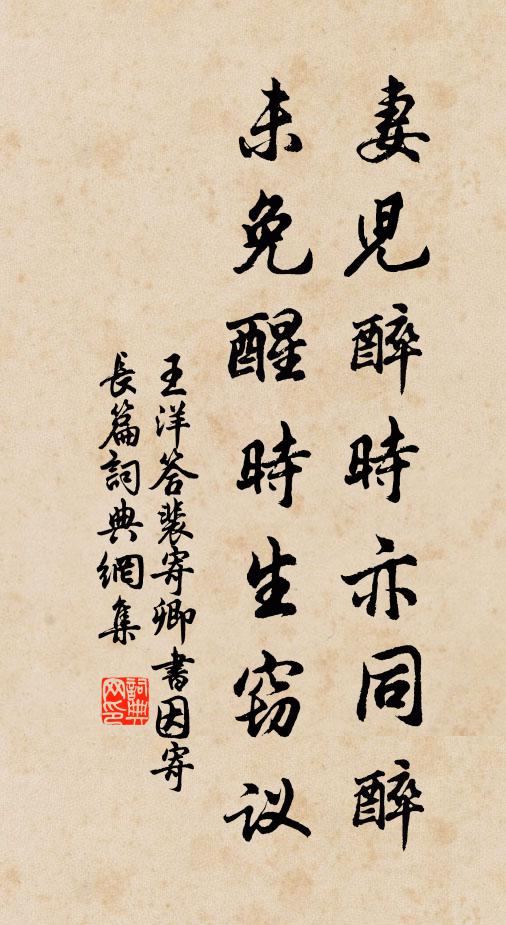 妻児醉時亦同醉
未免醒時生窃议
王洋答裴寄卿書因寄
長篇詞典網集
詞典网印